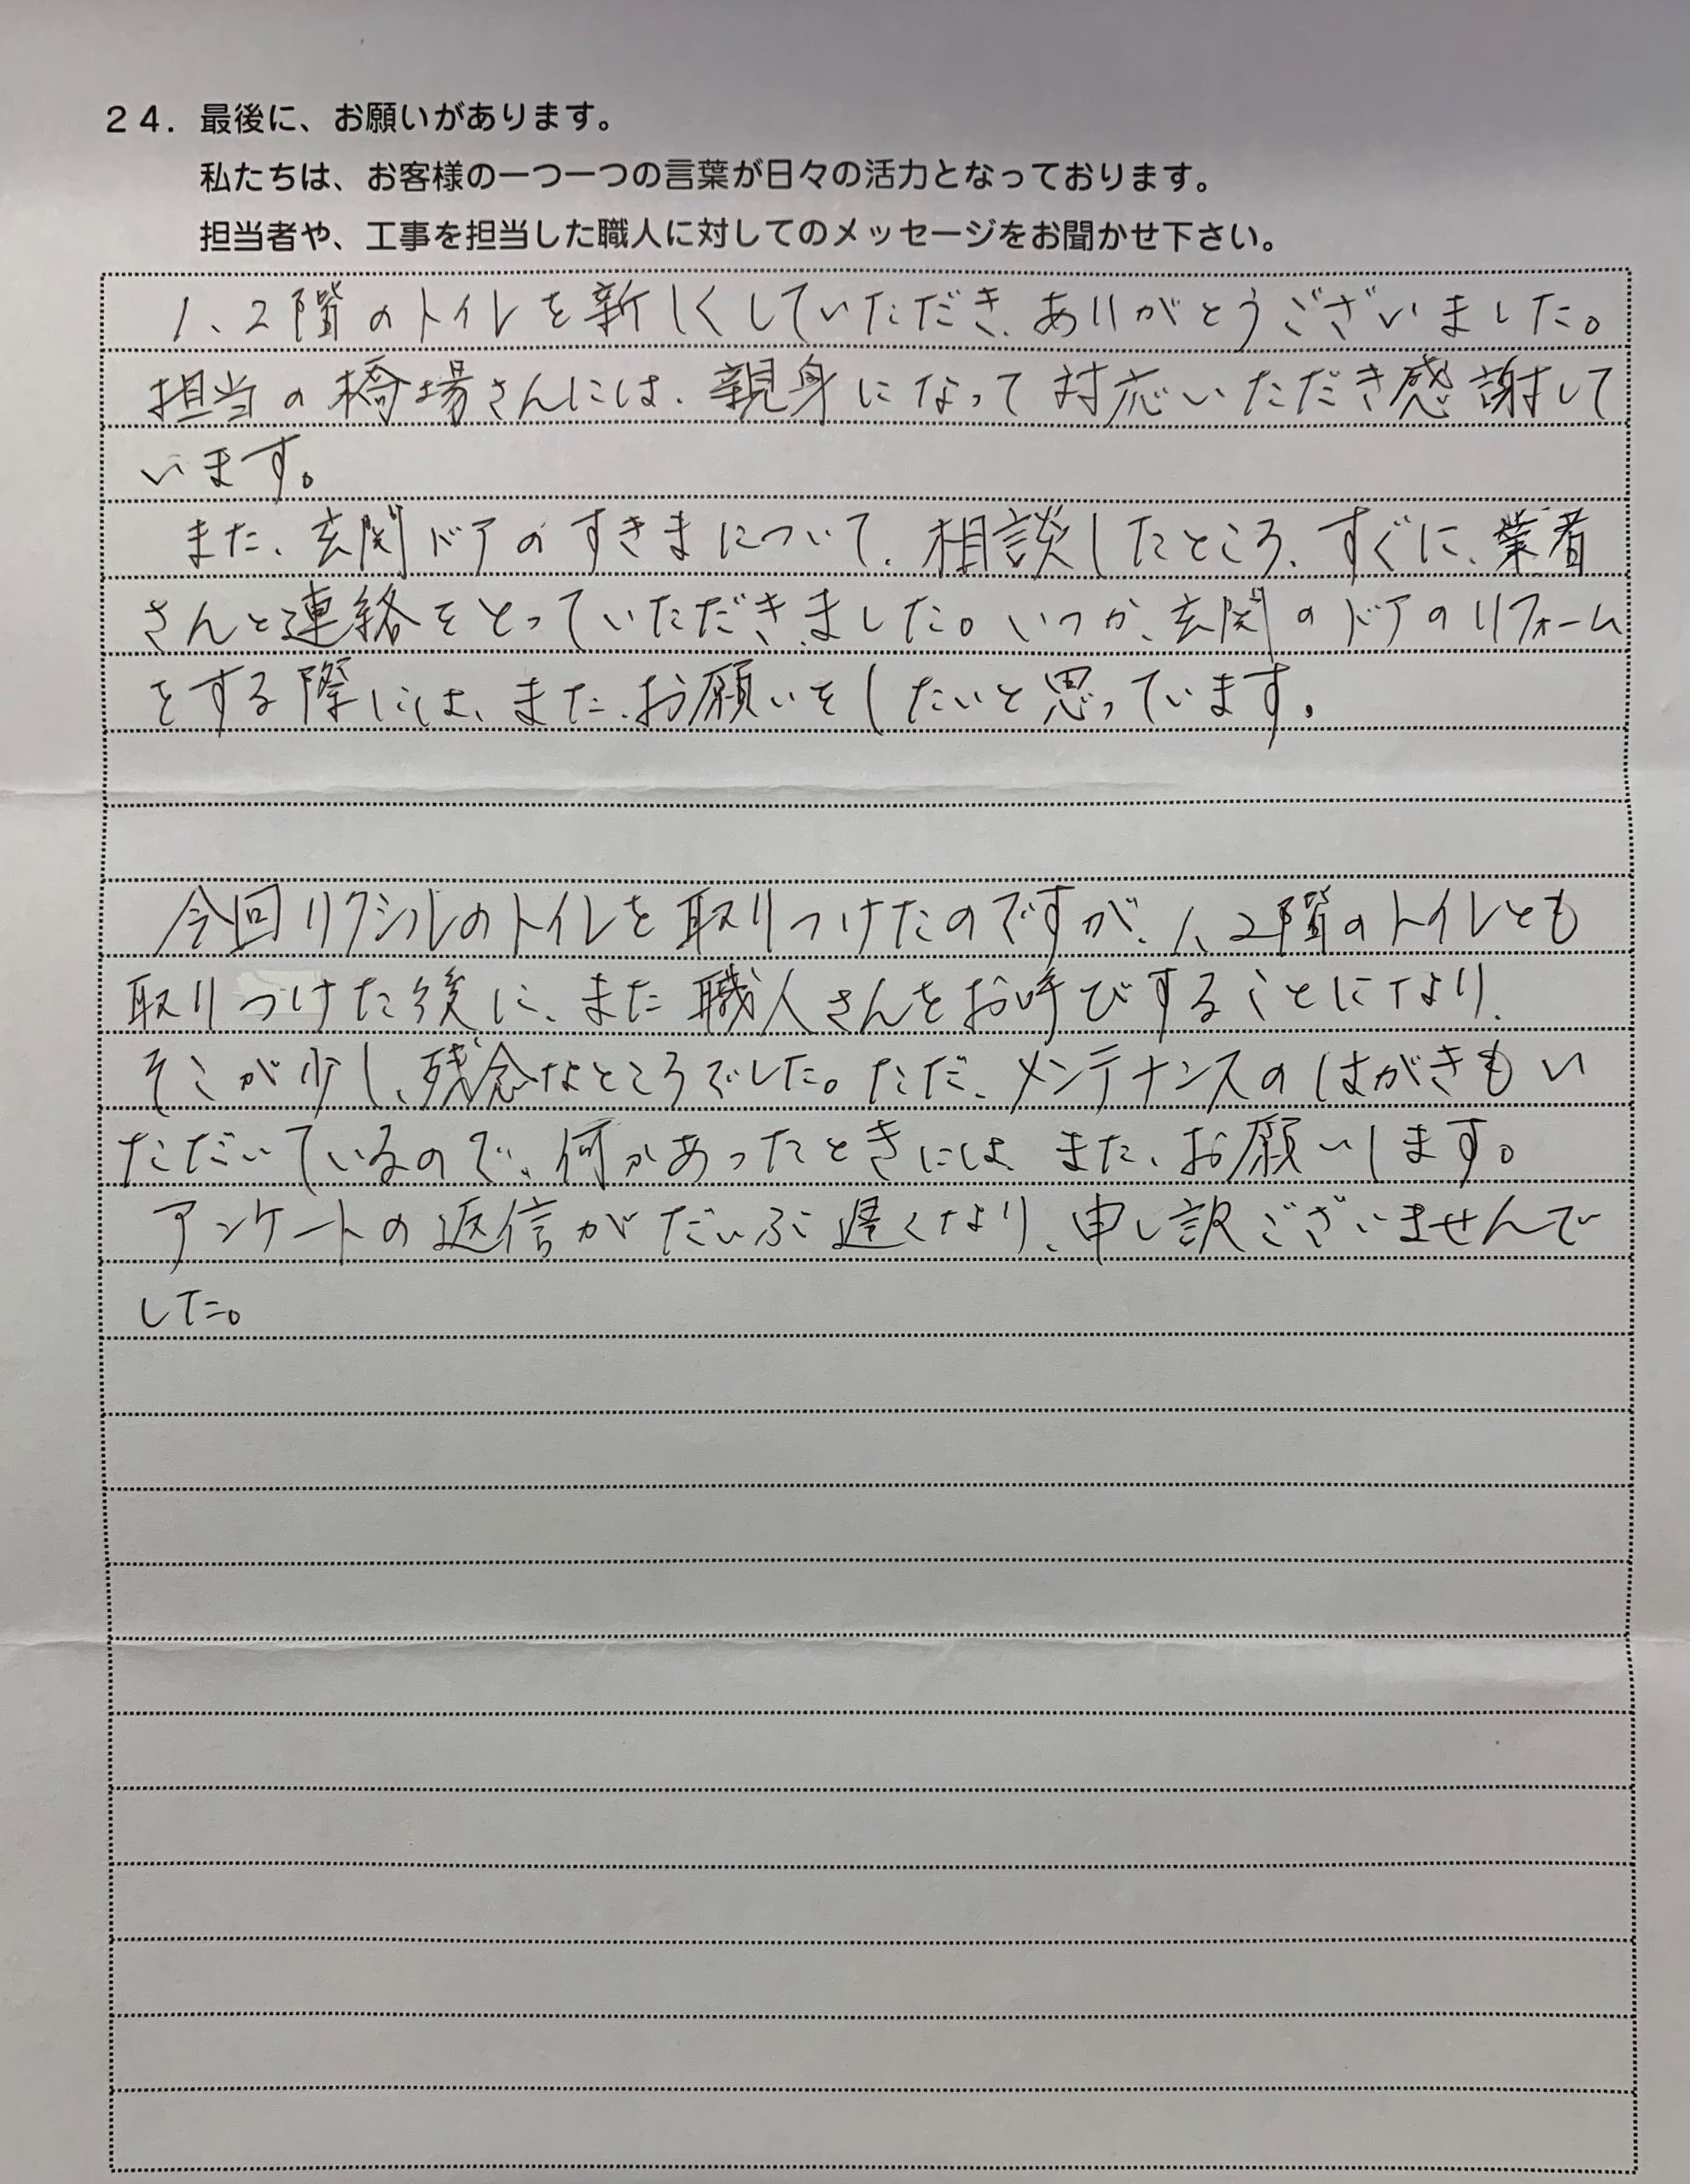 24．最後に、お願いがあります。
私たちは、お客様の一つ一つの言葉が日々の活力となっております。
担当者や、工事を担当した職人に対してのメッセージをお聞かせ下さい。
1、2階のトイレを新しくしていただき、ありがとうございました。
担当の橋場さんには、親身になって対応いただき感謝して
います。
また、玄関ドアのすきまについて、相談したところ、すぐに、業者
さんと連絡をとっていただきました。いつか、玄関のドアのリフォーム
をする際には、また、お願いをしたいと思っています。
今回リクシルのトイレを取りつけたのですが、1、2階のトイレとも
取りつけた後に、また職人さんをお呼びすることになり、
そこが少し、残念なところでした。ただ、メンテナンスのはがきもい
ただいているので、何かあったときには、また、お願いします。
アンケートの返信がだいぶ遅くなり、申し訳ございませんで
した。